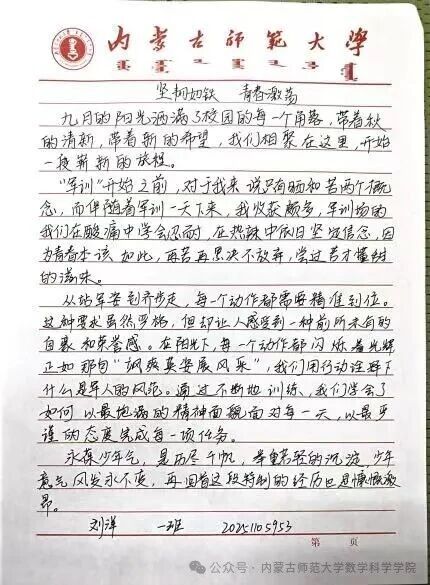 内蒙古师范大学
坚韧如铁 青春激荡
九月的阳光洒满了校园的每一个角落,带着秋
的清新,带着新的希望,我们相聚在这里,开始
一段崭新的旅程。
"军训"开始之前,对于我来说只有晒和苦两个概
念,而伴随着军训一天下来,我收获颇多,军训场的
我们在酸痛中学会忍耐,在热辣中依旧坚定信念,因
为青春本该如此,再苦再累决不放弃,尝过苦才懂甜
的滋味。
从站军姿到齐步走,每一个动作都需要精准到位。
这种要求虽然严格,但却让人感受到一种前所未有的
自豪和荣誉感。在阳光下,每一个动作都闪烁着光辉
正如那句"飒爽英姿展风采",我们用行动诠释了
什么是军人的风范。通过不断地训练,我们学会了
如何以最饱满的精神面貌面对每一天,以最严
谨的态度完成每一项任务。
永葆少年气,是历尽千帆,举重若轻的沉淀,少年
意气风发永不变,再回首这段特别的经历也是慷慨激
昂。
刘洋 一班 20251105953
第 页
公众号·内蒙古师范大学数学科学学院